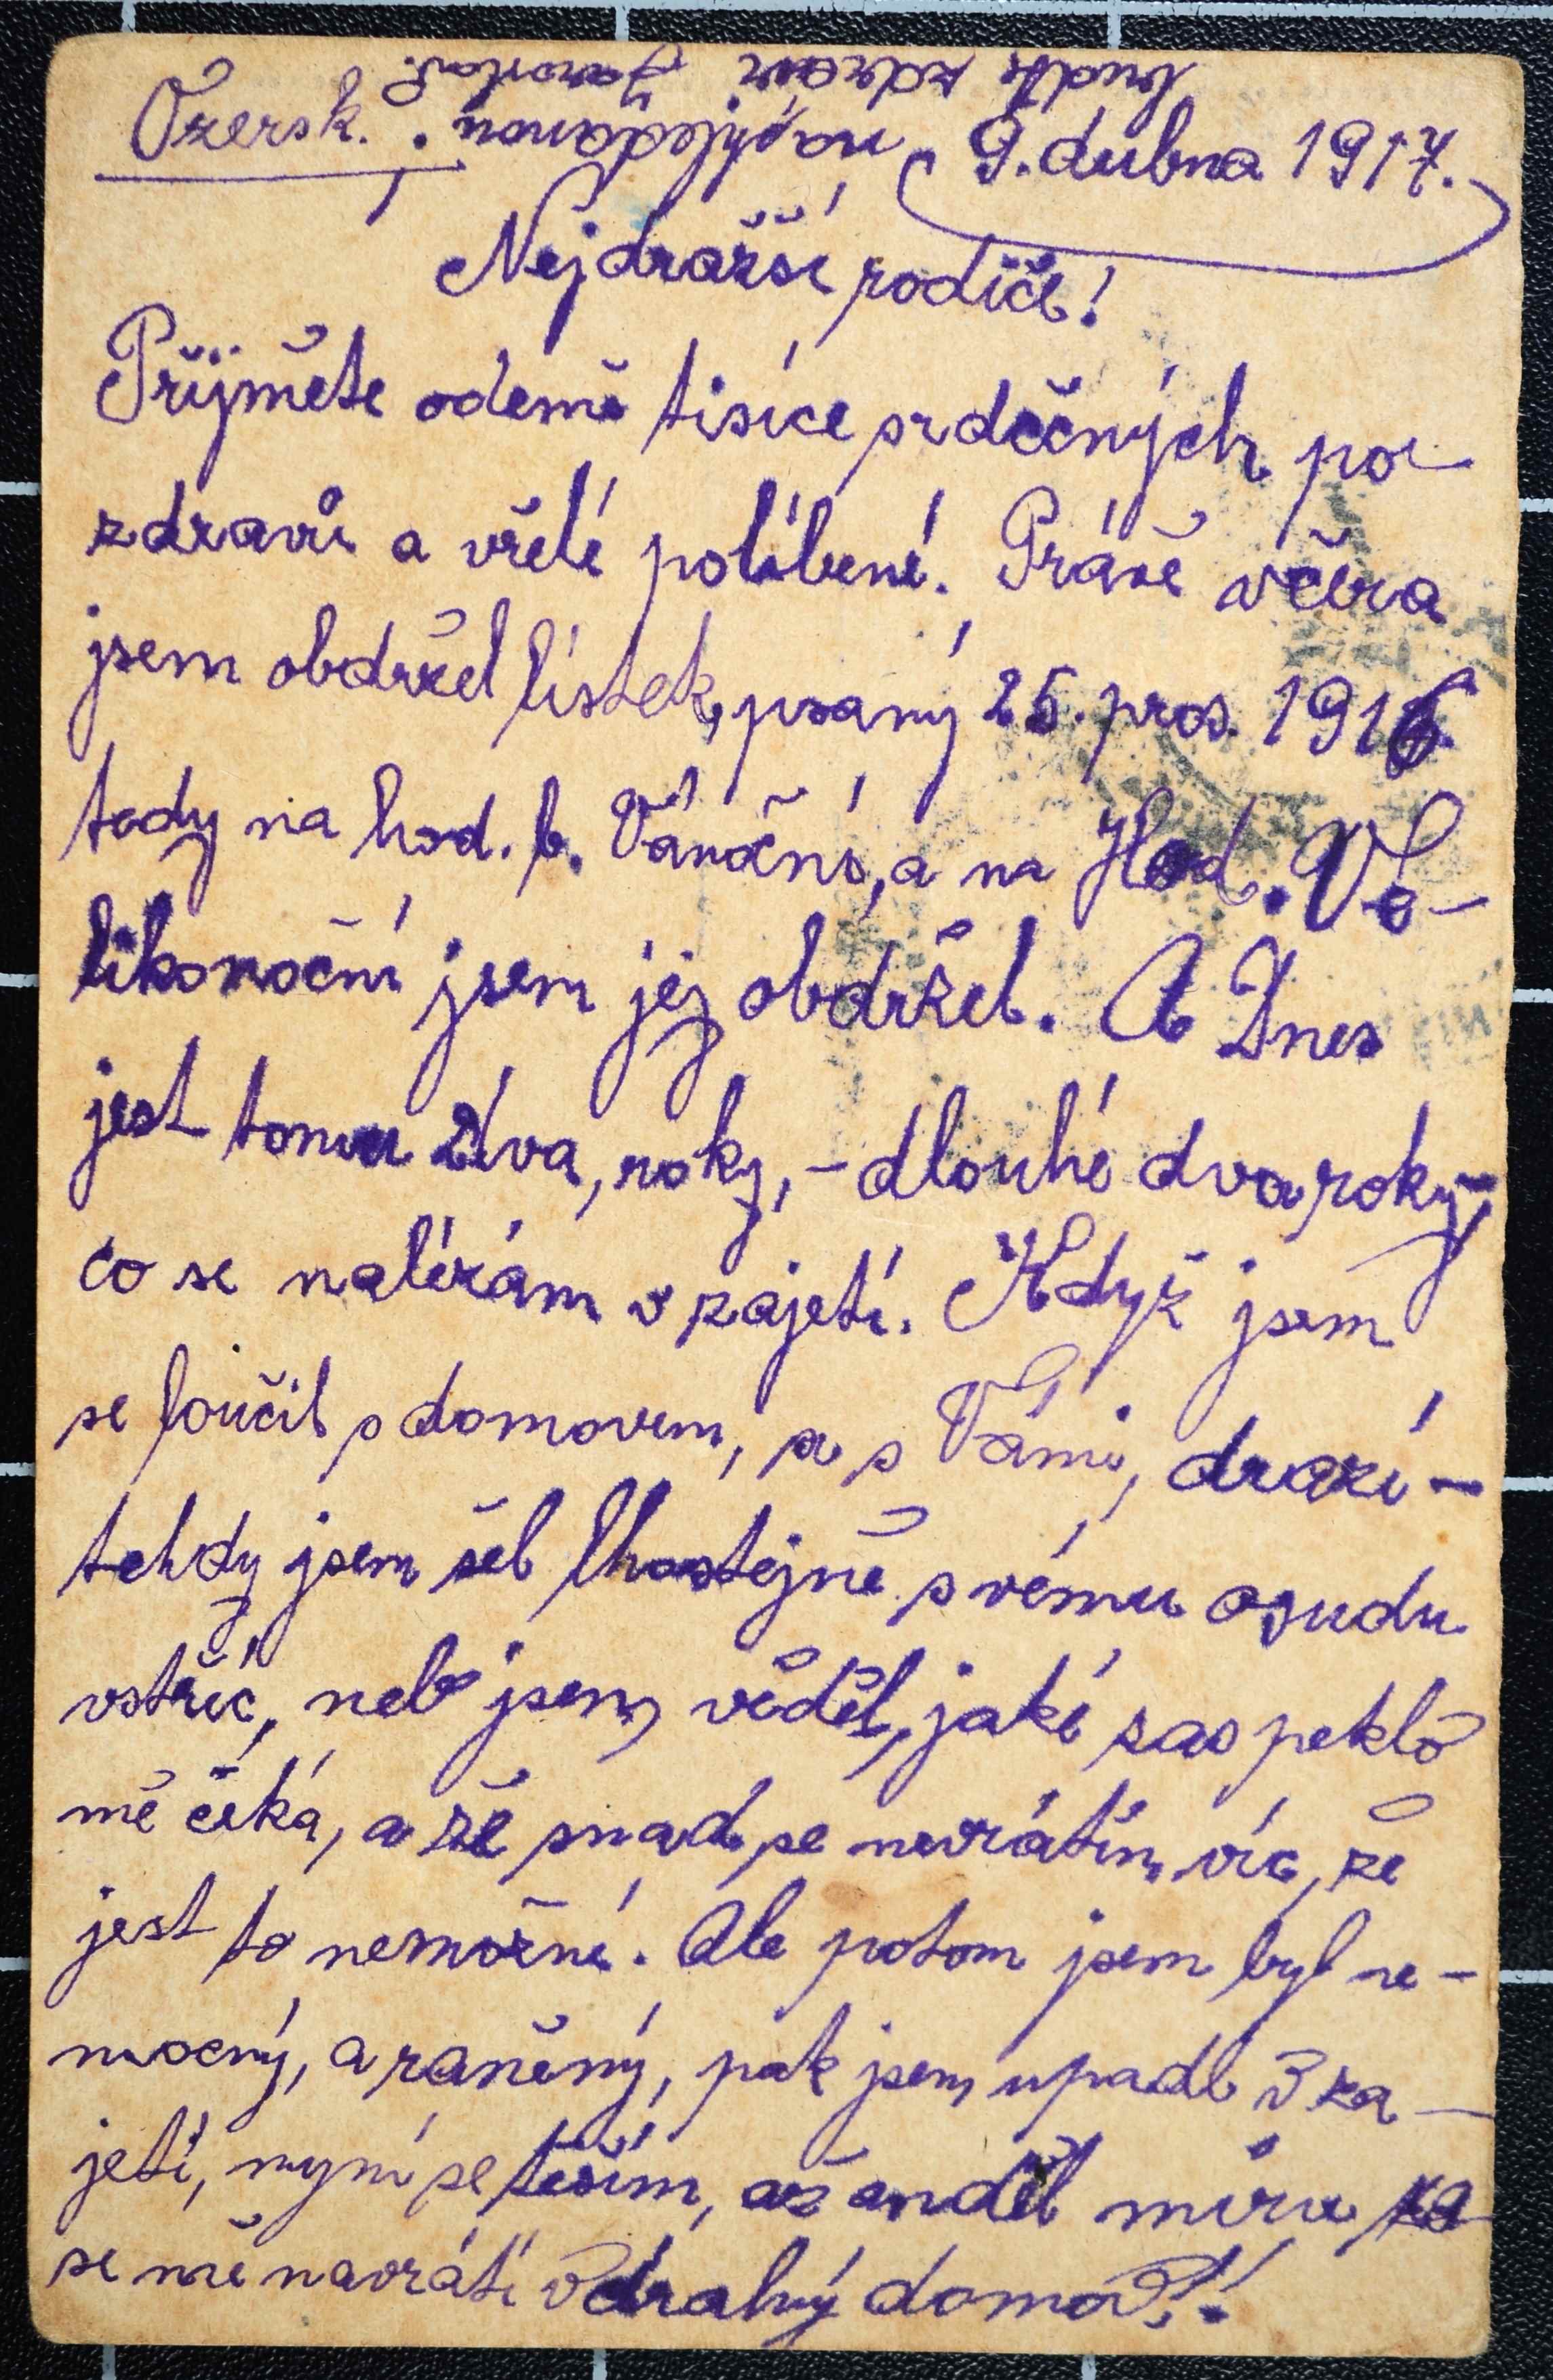 Ozersk.
9. dubna 1917.
Nejdražší rodiče!
Přijměte odemě tisíce srdečných po-
zdravů a vřelé políbení. Právě včera
jsem obdržel lístek, psaný 25. pros. 1916
tedy na hod. b. Vánoční, a na Hod. Ve-
likonoční jsem jej obdržel. A Dnes
jest tomu dva, roky, - dlouhé dva roky,
co se nalézám v zajetí. Když jsem
se loučil s domovem, a s Vámi, drazí -
tehdy jsem šel lhostejně svému osudu
vstříc, neb jsem věděl, jaké zas peklo
mě čeká, a že snad se nevrátím víc, že
jest to nemožné. Ale potom jsem byl ne-
mocný, a raněný, pak jsem upadl v za-
jetí, nyní se těším, až anděl míru za
se mě navrátí v drahý domov!!
na shledanou
buďte zdrávi Jaroslav